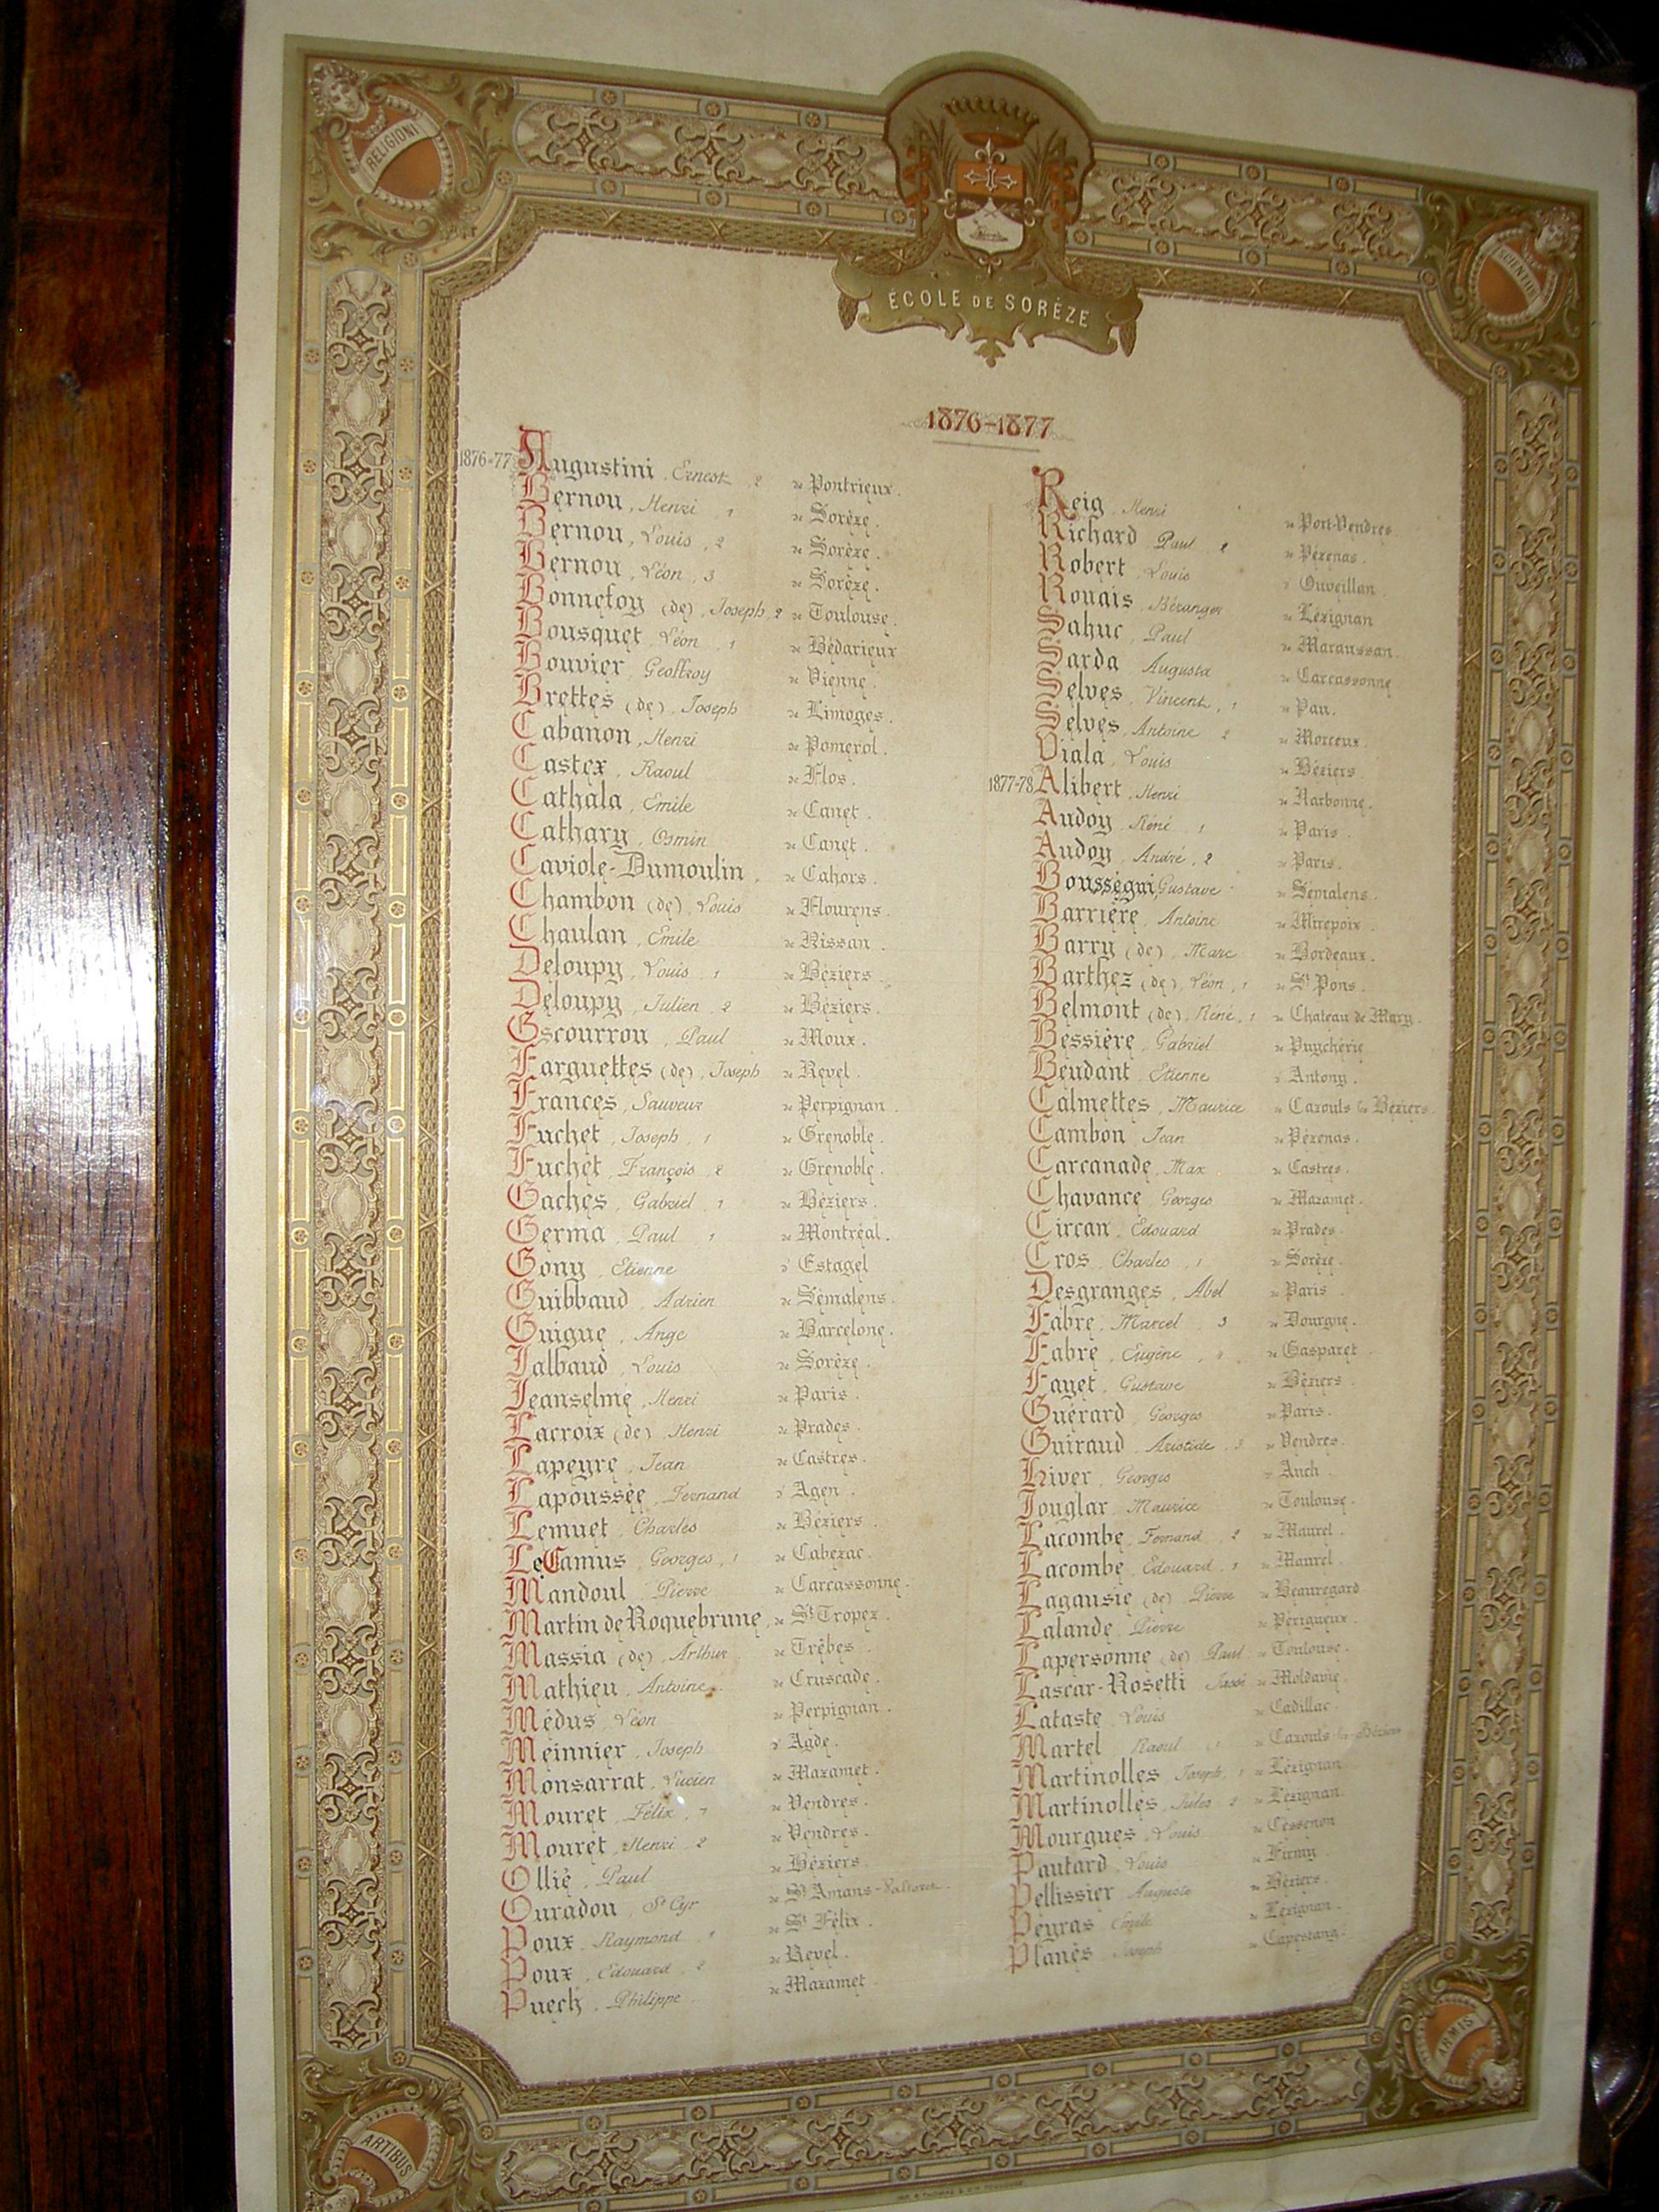 RELIGIONI
SCIENTIÆ
ÉCOLE DE SORÈZE
1876-1877
1876-77 Augustini, Ernest, 2 de Pontrieux.
Bernou, Henri, 1 de Sorèze.
Bernou, Louis, 2 de Sorèze.
Bernou, Léon, 3 de Sorèze.
Bonnefoy (de), Joseph, 2 de Toulouse.
Bousquet, Léon, 1 de Bédarieux
Bouvier, Geoffroy de Vienne.
Brettes (de), Joseph de Limoges.
Cabanon, Henri de Pomerol.
Castex, Raoul de Flos.
Cathala, Emile de Canet.
Cathary, Osmin de Canet.
Caviole-Dumoulin, de Cahors.
Chambon (de), Louis de Flourens.
Chaulan, Emile de Nissan.
Deloupy, Louis, 1 de Béziers.
Deloupy, Julien, 2 de Béziers.
Escourrou, Paul de Moux.
Farguettes (de), Joseph de Revel.
Francès, Sauveur de Perpignan.
Fuchet, Joseph, 1 de Grenoble.
Fuchet, François, 2 de Grenoble.
Gaches, Gabriel, 1 de Béziers.
Germa, Paul, 1 de Montréal.
Gony, Etienne d' Estagel
Guibbaud, Adrien de Sémalens.
Guigue, Ange de Barcelone.
Jalbaud, Louis de Sorèze.
Jeanselme, Henri de Paris.
Lacroix (de), Henri de Prades.
Lapeyre, Jean de Castres.
Lapoussée, Fernand d' Agen.
Lemuet, Charles de Béziers.
Le Camus, Georges, 1 de Cabezac.
Mandoul, Pierre de Carcassonne.
Martin de Roquebrune, de St Tropez.
Massia (de), Arthur de Trèbes.
Mathieu, Antoine, de Cruscade.
Médus, Léon de Perpignan.
Meinnier, Joseph d' Agde.
Monsarrat, Lucien de Mazamet.
Mouret, Félix, 1 de Vendres.
Mouret, Henri, 2 de Vendres.
Ollié, Paul de Béziers.
Ouradou, St Cyr de St Amans-Valtoret.
Poux, Raymond, 1 de St Félix.
Poux, Edouard, 2 de Revel.
Puech, Philippe de Mazamet.
Reig, Henri de Port-Vendres
Richard, Paul, 2 de Pézenas.
Robert, Louis d' Ouveillan.
Rouais, Béranger de Lézignan
Sahuc, Paul de Maraussan.
Sarda, Augusta de Carcassonne
Selves, Vincent, 1 de Pau.
Selves, Antoine, 2 de Morceux.
Viala, Louis de Béziers.
1877-78 Alibert, Henri de Narbonne.
Audoy, Réné, 1 de Paris.
Audoy, André, 2 de Paris.
Bousségui, Gustave de Sémalens.
Barrière, Antoine de Mirepoix.
Barry (de), Marc de Bordeaux.
Barthez (de), Léon, 1 de St Pons.
Belmont (de), Réné, 1 de Chateau de Mary.
Bessière, Gabriel de Puychéric
Beudant, Etienne d' Antony.
Calmettes, Maurice de Cazouls lès Béziers.
Cambon, Jean de Pézenas.
Carcanade, Max de Castres.
Chavance, Georges de Mazamet.
Circan, Edouard de Prades.
Cros, Charles, 1 de Sorèze.
Desgranges, Abel de Paris.
Fabre, Marcel, 3 de Dourgne.
Fabre, Eugène, de Gasparet.
Fayet, Gustave de Béziers.
Guérard, Georges de Paris.
Guiraud, Aristide, 3 de Vendres.
Hiver, Georges Auch.
Jouglar, Maurice de Toulouse.
Lacombe, Fernand, 2 de Maurel.
Lacombe, Edouard, 1 de Maurel.
Lagausie (de), Pierre de Beauregard
Lalande, Pierre de Périgueux.
Lapersonne (de), Paul de Toulouse.
Lascar-Rosetti de Moldavie.
Lataste, Louis de Cadillac.
Martel, Raoul, de Cazouls lès Béziers
Martinolles, Joseph, 1 de Lézignan
Martinolles, Jules, 2 de Lézignan.
Mourgues, Louis de Cessenon
Pautard, Louis de Firmy.
Pellissier, Auguste de Béziers.
Peyras, Emile de Lézignan.
Planès, Joseph de Capestang.
ARTIBUS
ARMIS